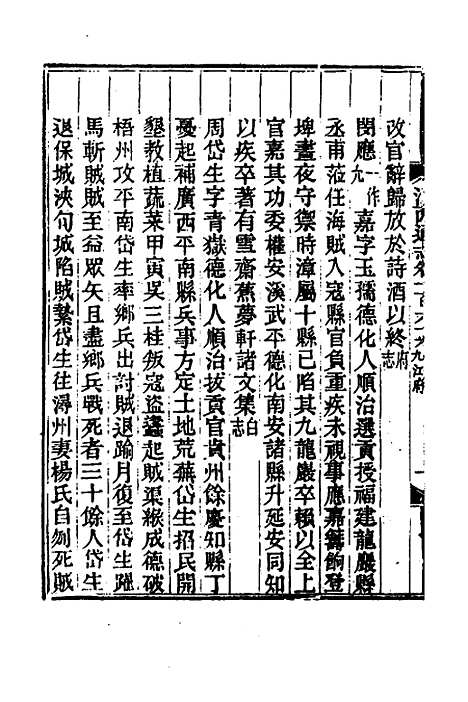 改官辭歸放於詩酒以終府志
閔應一作九嘉字玉孺德化人順治選貢授福建龍巖縣
丞甫蒞任海賊入寇縣官負重疾未視事應嘉籌餉登
埤晝夜守禦時漳屬十縣已陷其九龍巖卒賴以全上
官嘉其功委權安溪武平德化南安諸縣升延安同知
以疾卒著有雪齋蕉夢軒諸文集白志
周岱生字青嶽德化人順治拔貢官貴州餘慶知縣丁
憂起補廣西平南縣兵事方定土地荒蕪岱生招民開
墾教植蔬菜甲寅吳三桂叛寇盜蠭起賊渠緱成德破
梧州攻平南岱生率鄉兵出討賊退踰月復至岱生躍
馬斬賊賊至益眾矢且盡鄉兵戰死者三十餘人岱生
退保城浹旬城陷賊縶岱生往潯州妻楊氏自刎死賊
江西通志卷一百六十 九江府